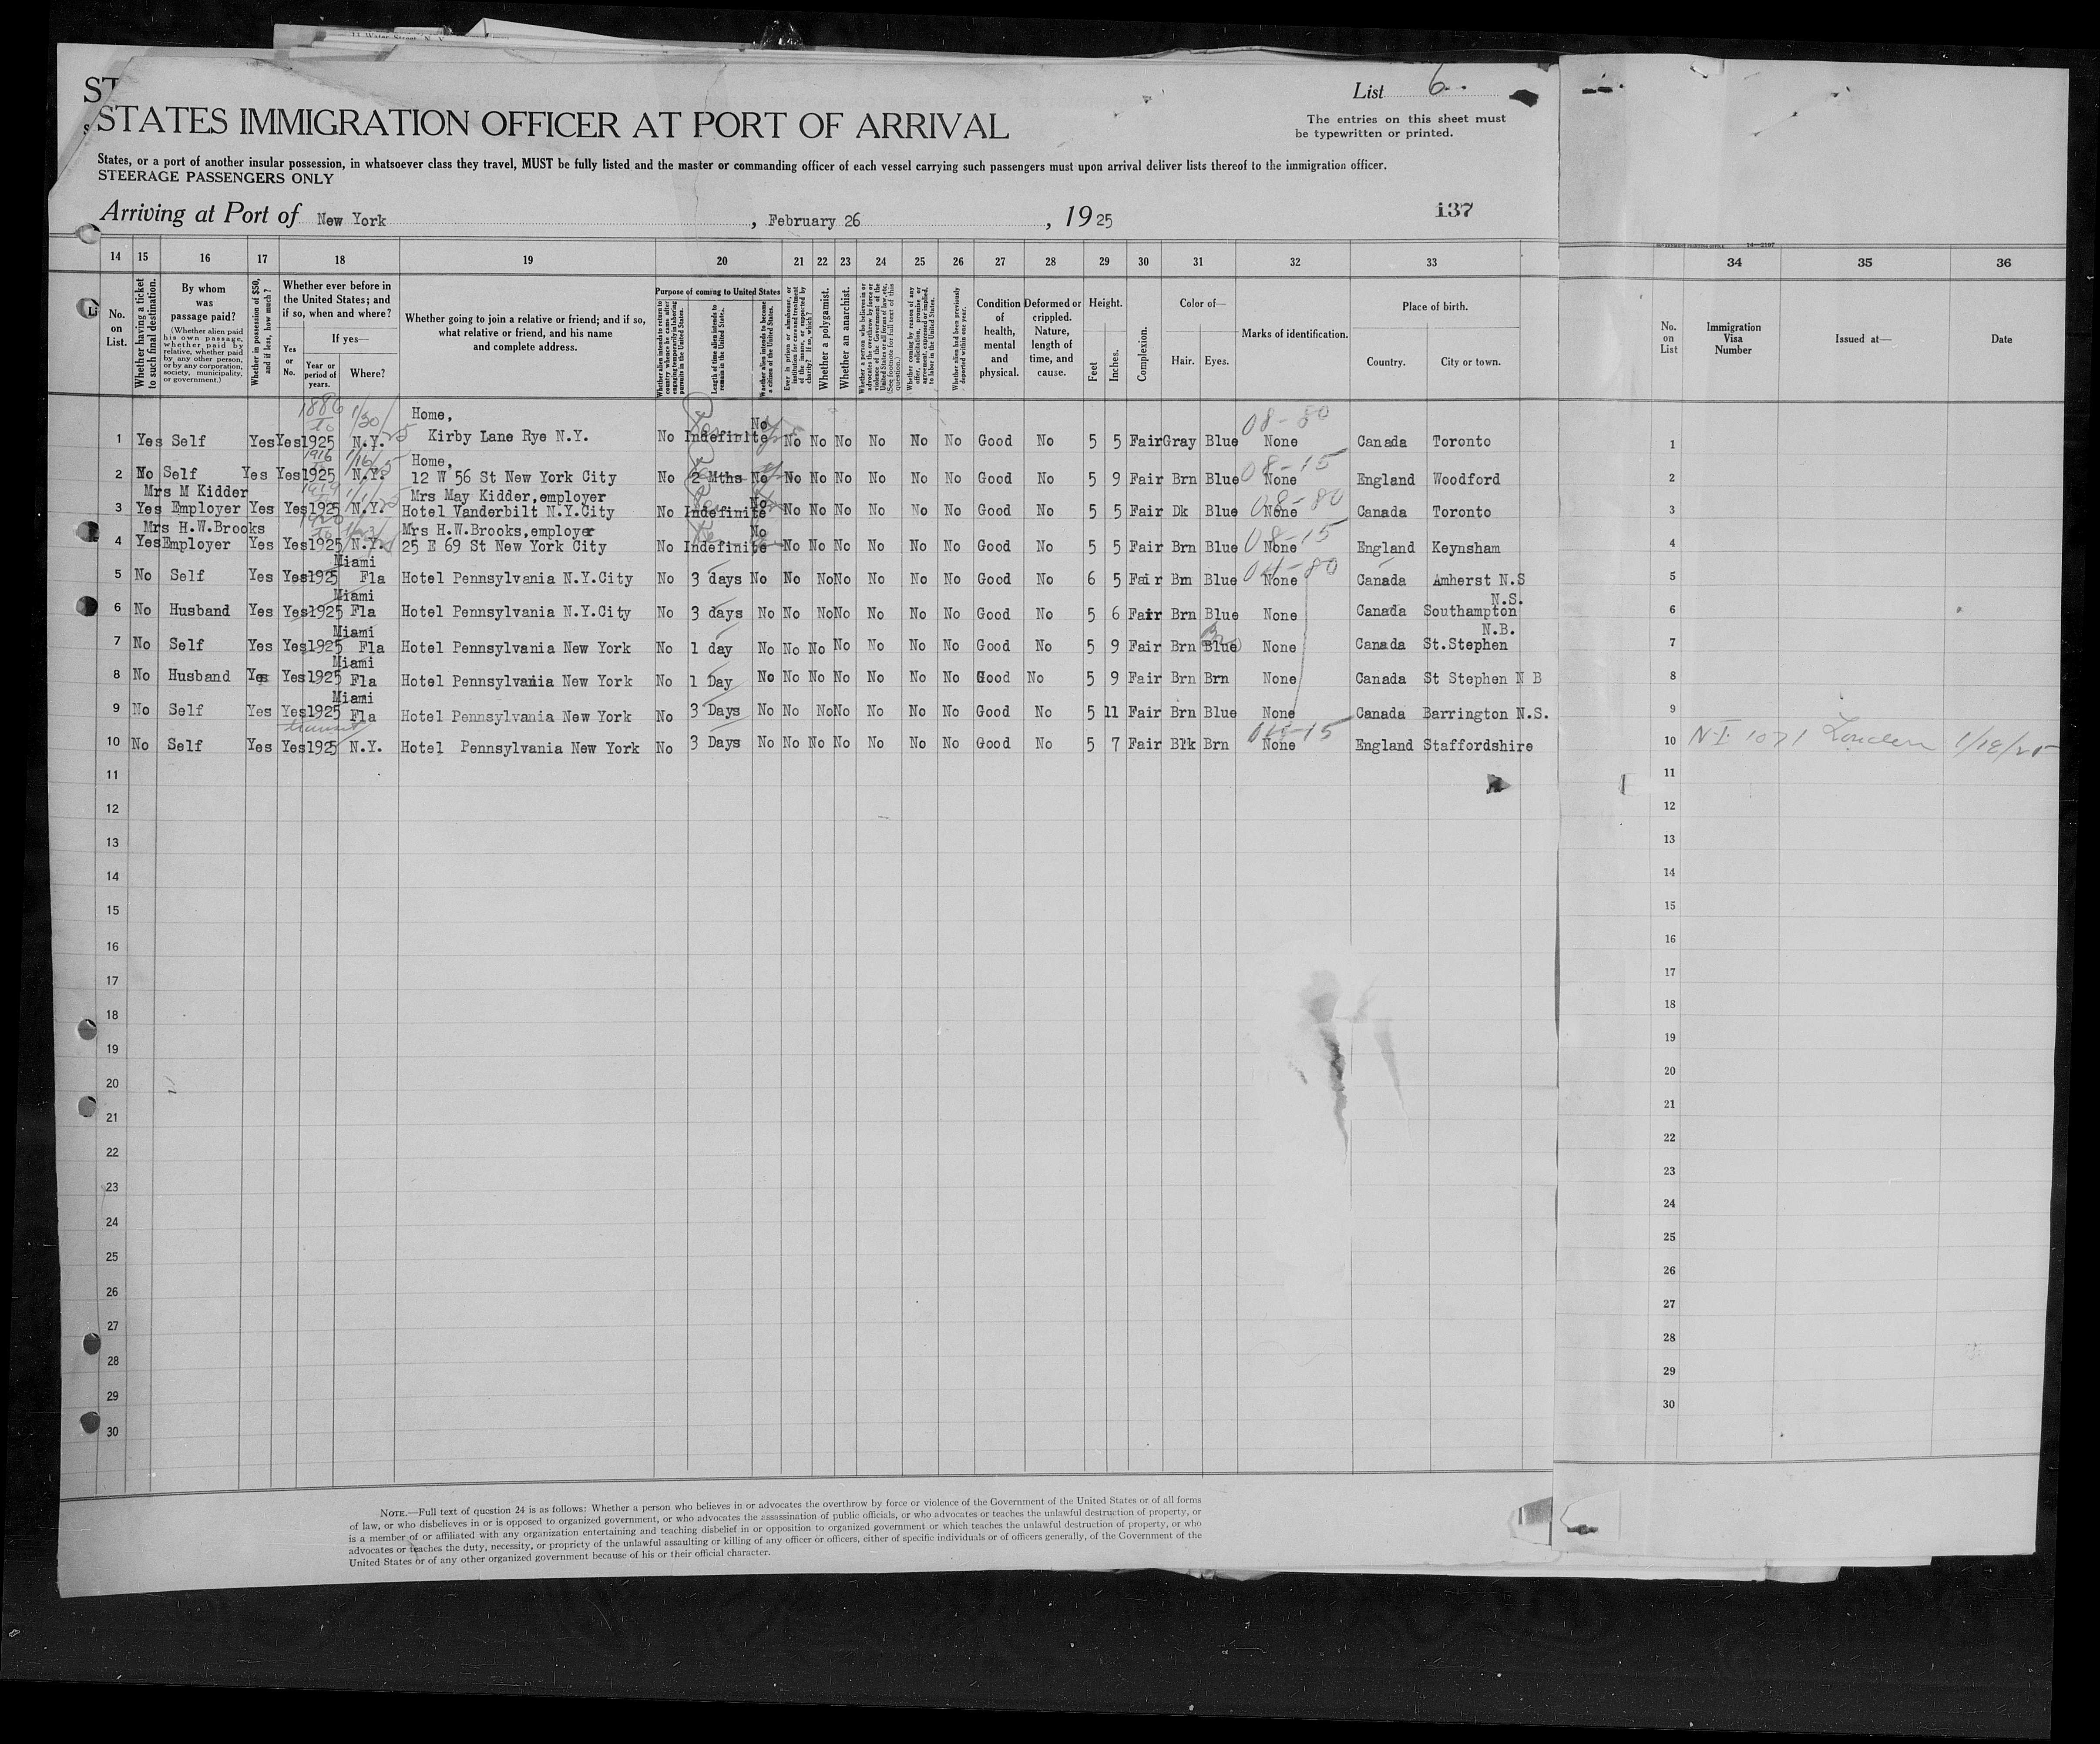 ST
List 6
STATES IMMIGRATION OFFICER AT PORT OF ARRIVAL
The entries on this sheet must
be typewritten or printed.
States, or a port of another insular possession, in whatsoever class they travel, MUST be fully listed and the master or commanding officer of each vessel carrying such passengers must upon arrival deliver lists thereof to the immigration officer.
STEERAGE PASSENGERS ONLY
Arriving at Port of New York, February 26, 1925
137
14 15 16 17 18 19 20 21 22 23 24 25 26 27 28 29 30 31 32 33 34 35 36
No. on List.
Whether having a ticket to such final destination.
By whom was passage paid?
(Whether alien paid his own passage, whether paid by relative, whether paid by any other person, or by any corporation, society, municipality, or government.)
Whether in possession of $50, and if less, how much?
Whether ever before in the United States; and if so, when and where?
Yes or No.
If yes—
Year or period of years.
Where?
Whether going to join a relative or friend; and if so, what relative or friend, and his name and complete address.
Purpose of coming to United States
Length of time alien intends to remain in the United States.
Whether alien intends to become a citizen of the United States.
Whether a polygamist.
Whether an anarchist.
Condition of health, mental and physical.
Deformed or crippled. Nature, length of time, and cause.
Height.
Feet
Inches.
Complexion.
Color of—
Hair.
Eyes.
Marks of identification.
Place of birth.
Country.
City or town.
No. on List
Immigration Visa Number
Issued at—
Date
1886 1/30/25 Home, No 08-80
1 Yes Self Yes Yes 1925 N.Y. Kirby Lane Rye N.Y. No Indefinite No No No No No No Good No 5 5 Fair Gray Blue None Canada Toronto 1
1916 1/16/25 Home, 08-15
2 No Self Yes Yes 1925 N.Y. 12 W 56 St New York City No 2 Mths No No No No No No No Good No 5 9 Fair Brn Blue None England Woodford 2
Mrs M Kidder Mrs May Kidder, employer No 08-80
3 Yes Employer Yes Yes 1925 N.Y. Hotel Vanderbilt N.Y.City No Indefinite No No No No No No Good No 5 5 Fair Dk Blue None Canada Toronto 3
Mrs H.W.Brooks Mrs H.W.Brooks, employer No 08-15
4 Yes Employer Yes Yes 1925 N.Y. 25 E 69 St New York City No Indefinite No No No No No No Good No 5 5 Fair Brn Blue None England Keynsham 4
Miami
5 No Self Yes Yes 1925 Fla Hotel Pennsylvania N.Y.City No 3 days No No No No No No No Good No 6 5 Fair Brn Blue None Canada Amherst N.S 5
Miami N.S.
6 No Husband Yes Yes 1925 Fla Hotel Pennsylvania N.Y.City No 3 days No No No No No No No Good No 5 6 Fair Brn Blue None Canada Southampton 6
Miami N.B.
7 No Self Yes Yes 1925 Fla Hotel Pennsylvania New York No 1 day No No No No No No No Good No 5 9 Fair Brn Blue None Canada St.Stephen 7
Miami
8 No Husband Yes Yes 1925 Fla Hotel Pennsylvania New York No 1 Day No No No No No No No Good No 5 9 Fair Brn Brn None Canada St Stephen N B 8
Miami
9 No Self Yes Yes 1925 Fla Hotel Pennsylvania New York No 3 Days No No No No No No No Good No 5 11 Fair Brn Blue None Canada Barrington N.S. 9
transit
10 No Self Yes Yes 1925 N.Y. Hotel Pennsylvania New York No 3 Days No No No No No No No Good No 5 7 Fair Blk Brn None England Staffordshire 10 N-I 1071 London
11 11
12 12
13 13
14 14
15 15
16 16
17 17
18 18
19 19
20 20
21 21
22 22
23 23
24 24
25 25
26 26
27 27
28 28
29 29
30 30
NOTE.—Full text of question 24 is as follows: Whether a person who believes in or advocates the overthrow by force or violence of the Government of the United States or of all forms
of law, or who disbelieves in or is opposed to organized government, or who advocates the assassination of public officials, or who advocates or teaches the unlawful destruction of property, or
is a member of or affiliated with any organization entertaining and teaching disbelief in or opposition to organized government or which teaches the unlawful destruction of property, or who
advocates or teaches the duty, necessity, or propriety of the unlawful assaulting or killing of any officer or officers, either of specific individuals or of officers generally, of the Government of the
United States or of any other organized government because of his or their official character.